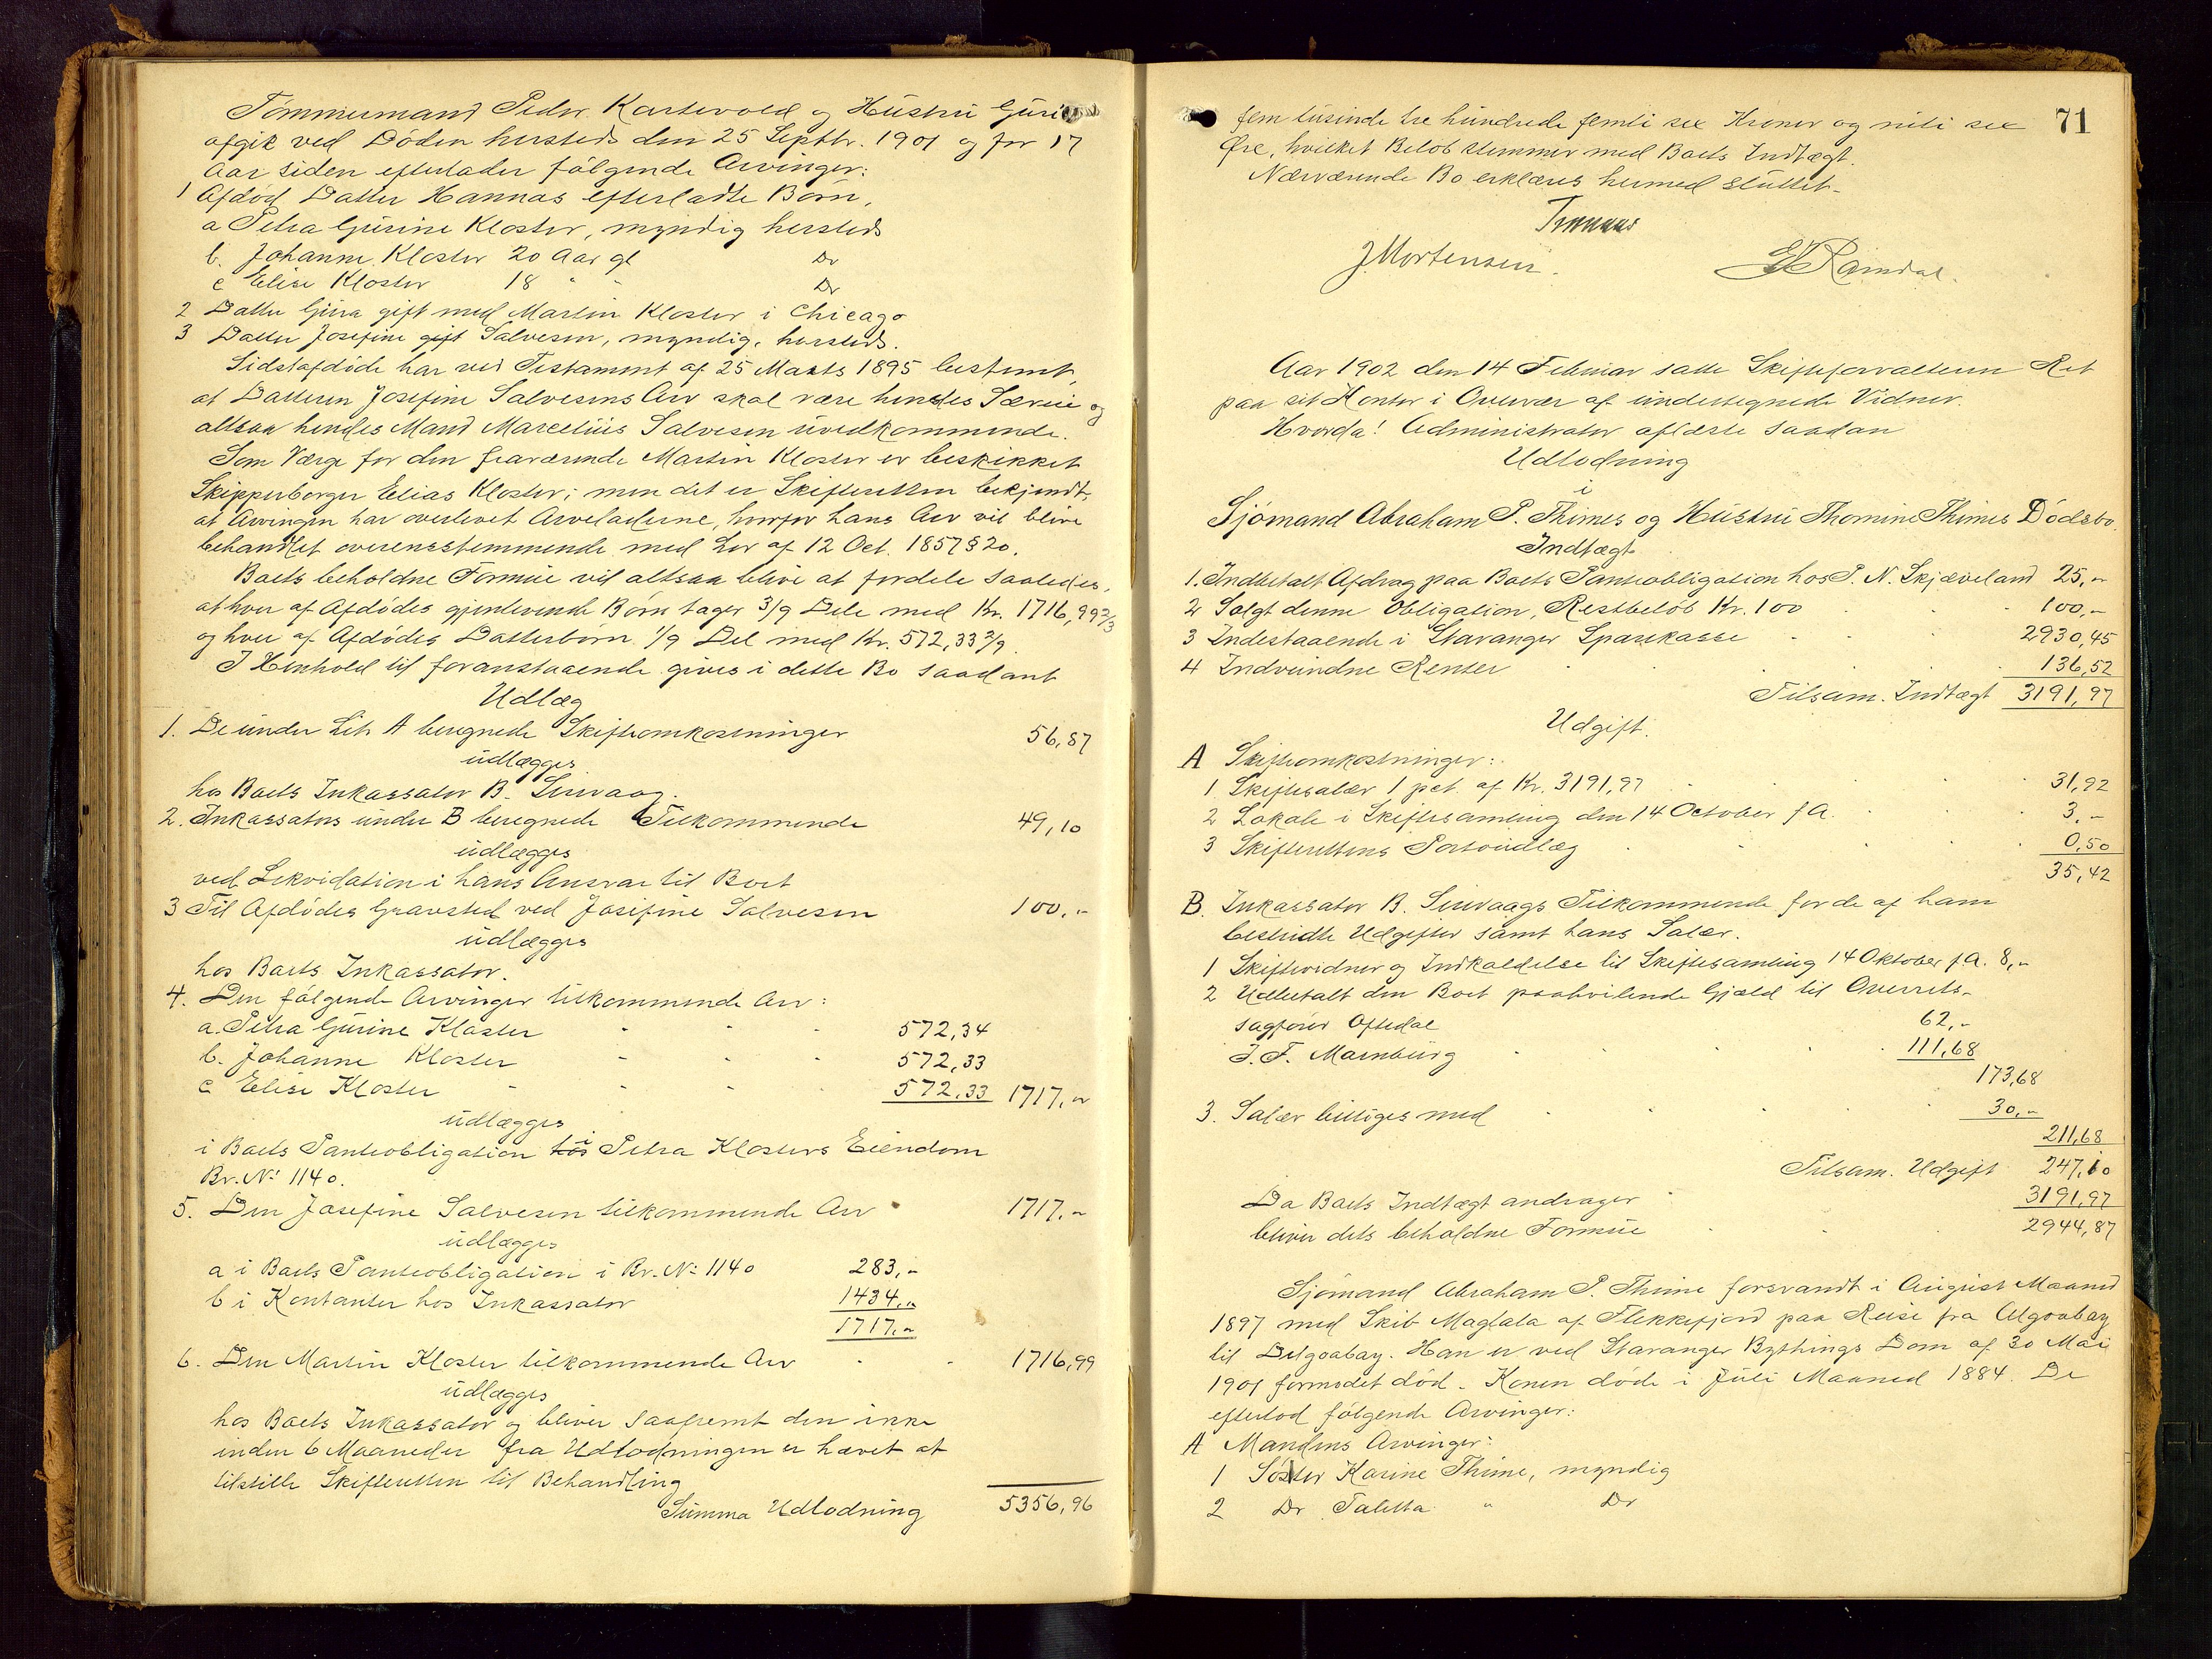 Tømmermand Peder Kartevold og Hustru Guri
afgik ved Døden hersteds den 25 Septbr. 1901 og for 17
Aar siden efterlader følgende Arvinger:
1 Afdød Datter Hannas efterladte Børn,
a Petra Gurine Kloster, myndig hersteds
b. Johanne Kloster 20 Aar gl Do
c Elise Kloster 18 " " Do
2 Datter Gura gift med Martin Kloster i Chicago
3 Datter Josefine gift Salvesen, myndig, hersteds.
Sidstafdøde har ved Testament af 25 Marts 1895 bestemt,
at Datteren Josefine Salvesens Arv skal være hendes Særeie og
altsaa hendes Mand Marcelius Salvesen uvedkommende.
Som Værge for den fraværende Martin Kloster er beskikket
Skipperborger Elias Kloster; men det er Skifteretten bekjendt,
at Arvingen har overlevet Arveladerne, hvorfor hans Arv vil blive
behandlet overensstemmende med Lov af 12 Oct. 1857 § 20.
Boets beholdne Formue vil altsaa blive at fordele saaledes,
at hver af Afdødes gjenlevende Børn tager 3/9 Dele med Kr. 1716,99 2/3
og hver af Afdødes Datterbørn 1/9 Del med Kr. 572,33 2/9.
I Henhold til foranstaaende gives i dette Bo saadant
Udlæg
1. De under Lit. A beregnede Skifteomkostninger 56,87
udlægges
hos Boets Inkassator B. Sirevaag.
2. Inkassators under B beregnede Tilkommende 49,10
udlægges
ved Likvidation i hans Ansvar til Boet
3 Til Afdødes Gravsted ved Josefine Salvesen 100.-
udlægges
hos Boets Inkassator.
4. Den følgende Arvinger tilkommende Arv:
a. Petra Gurine Kloster 572,34
b. Johanne Kloster 572,33
c Elise Kloster 572,33 1717.-
udlægges
i Boets Panteobligation hos i Petra Klosters Eiendom
Br. No 1140.
5. Den Josefine Salvesen tilkommende Arv 1717.-
udlægges
a i Boets Panteobligation i Br. No 1140 283,-
b i Kontanter hos Inkassator 1434.-
1717.-
6. Den Martin Kloster tilkommende Arv 1716,99
udlægges
hos Boets Inkassator og bliver saafremt den ikke
inden 6 Maaneder fra Udlodningen er hævet at
tilstille Skifteretten til Behandling
Summa Udlodning 5356,96
71
fem tusinde tre hundrede femti sex Kroner og niti sex
Øre, hvilket Beløb stemmer med Boets Indtægt.
Nærværende Bo erklæres hermed sluttet.
J. Mortensen. Ramdal.
Aar 1902 den 14 Februar satte Skifteforvalteren Ret
paa sit Kontor i Overvær af undertegnede Vidner.
Hvorda! Administrator aflæste saadan
Udlodning
i
Sjømand Abraham P. Thimes og Hustru Thomine Thimes Dødsbo.
Indtægt
1. Indbetalt Afdrag paa Boets Panteobligation hos P. N. Skjæveland 25,-
2 Solgt denne Obligation, Restbeløb Kr. 100 100,-
3 Indestaaende i Stavanger Sparekasse 2930,45
4 Indvundne Renter 136,52
Tilsam. Indtægt 3191,97
Udgift.
A Skifteomkostninger:
1 Skiftesalær 1 pct. af Kr. 3191,97 31,92
2 Lokale i Skiftesamling den 14 October f A. 3.-
3 Skifterettens Portoudlæg 0,50
35,42
B. Inkassator B. Sirevaags Tilkommende for de af ham
bestridte Udgifter samt hans Salær.
1 Skiftevidner og Indkaldelse til Skiftesamling 14 Oktober f A. 8,-
2 Udbetalt den Boet paahvilende Gjæld til Overrets-
sagfører Oftedal 62,-
J. F. Marnburg 111,68
173,68
3. Salær billiges med 30,-
211,68
Tilsam. Udgift 247,10
Da Boets Indtægt andrager 3191,97
bliver dets beholdne Formue 2944,87
Sjømand Abraham P. Thime forsvandt i August Maaned
1897 med Skib Magtala af Flekkefjord paa Reise fra Algoabay
til Delgoabay. Han er ved Stavanger Bythings Dom af 30 Mai
1901 formodet død. Konen døde i Juli Maaned 1884. De
efterlod følgende Arvinger:
A Mandens Arvinger:
1 Søster Karine Thime, myndig
2 Do Taletta " Do